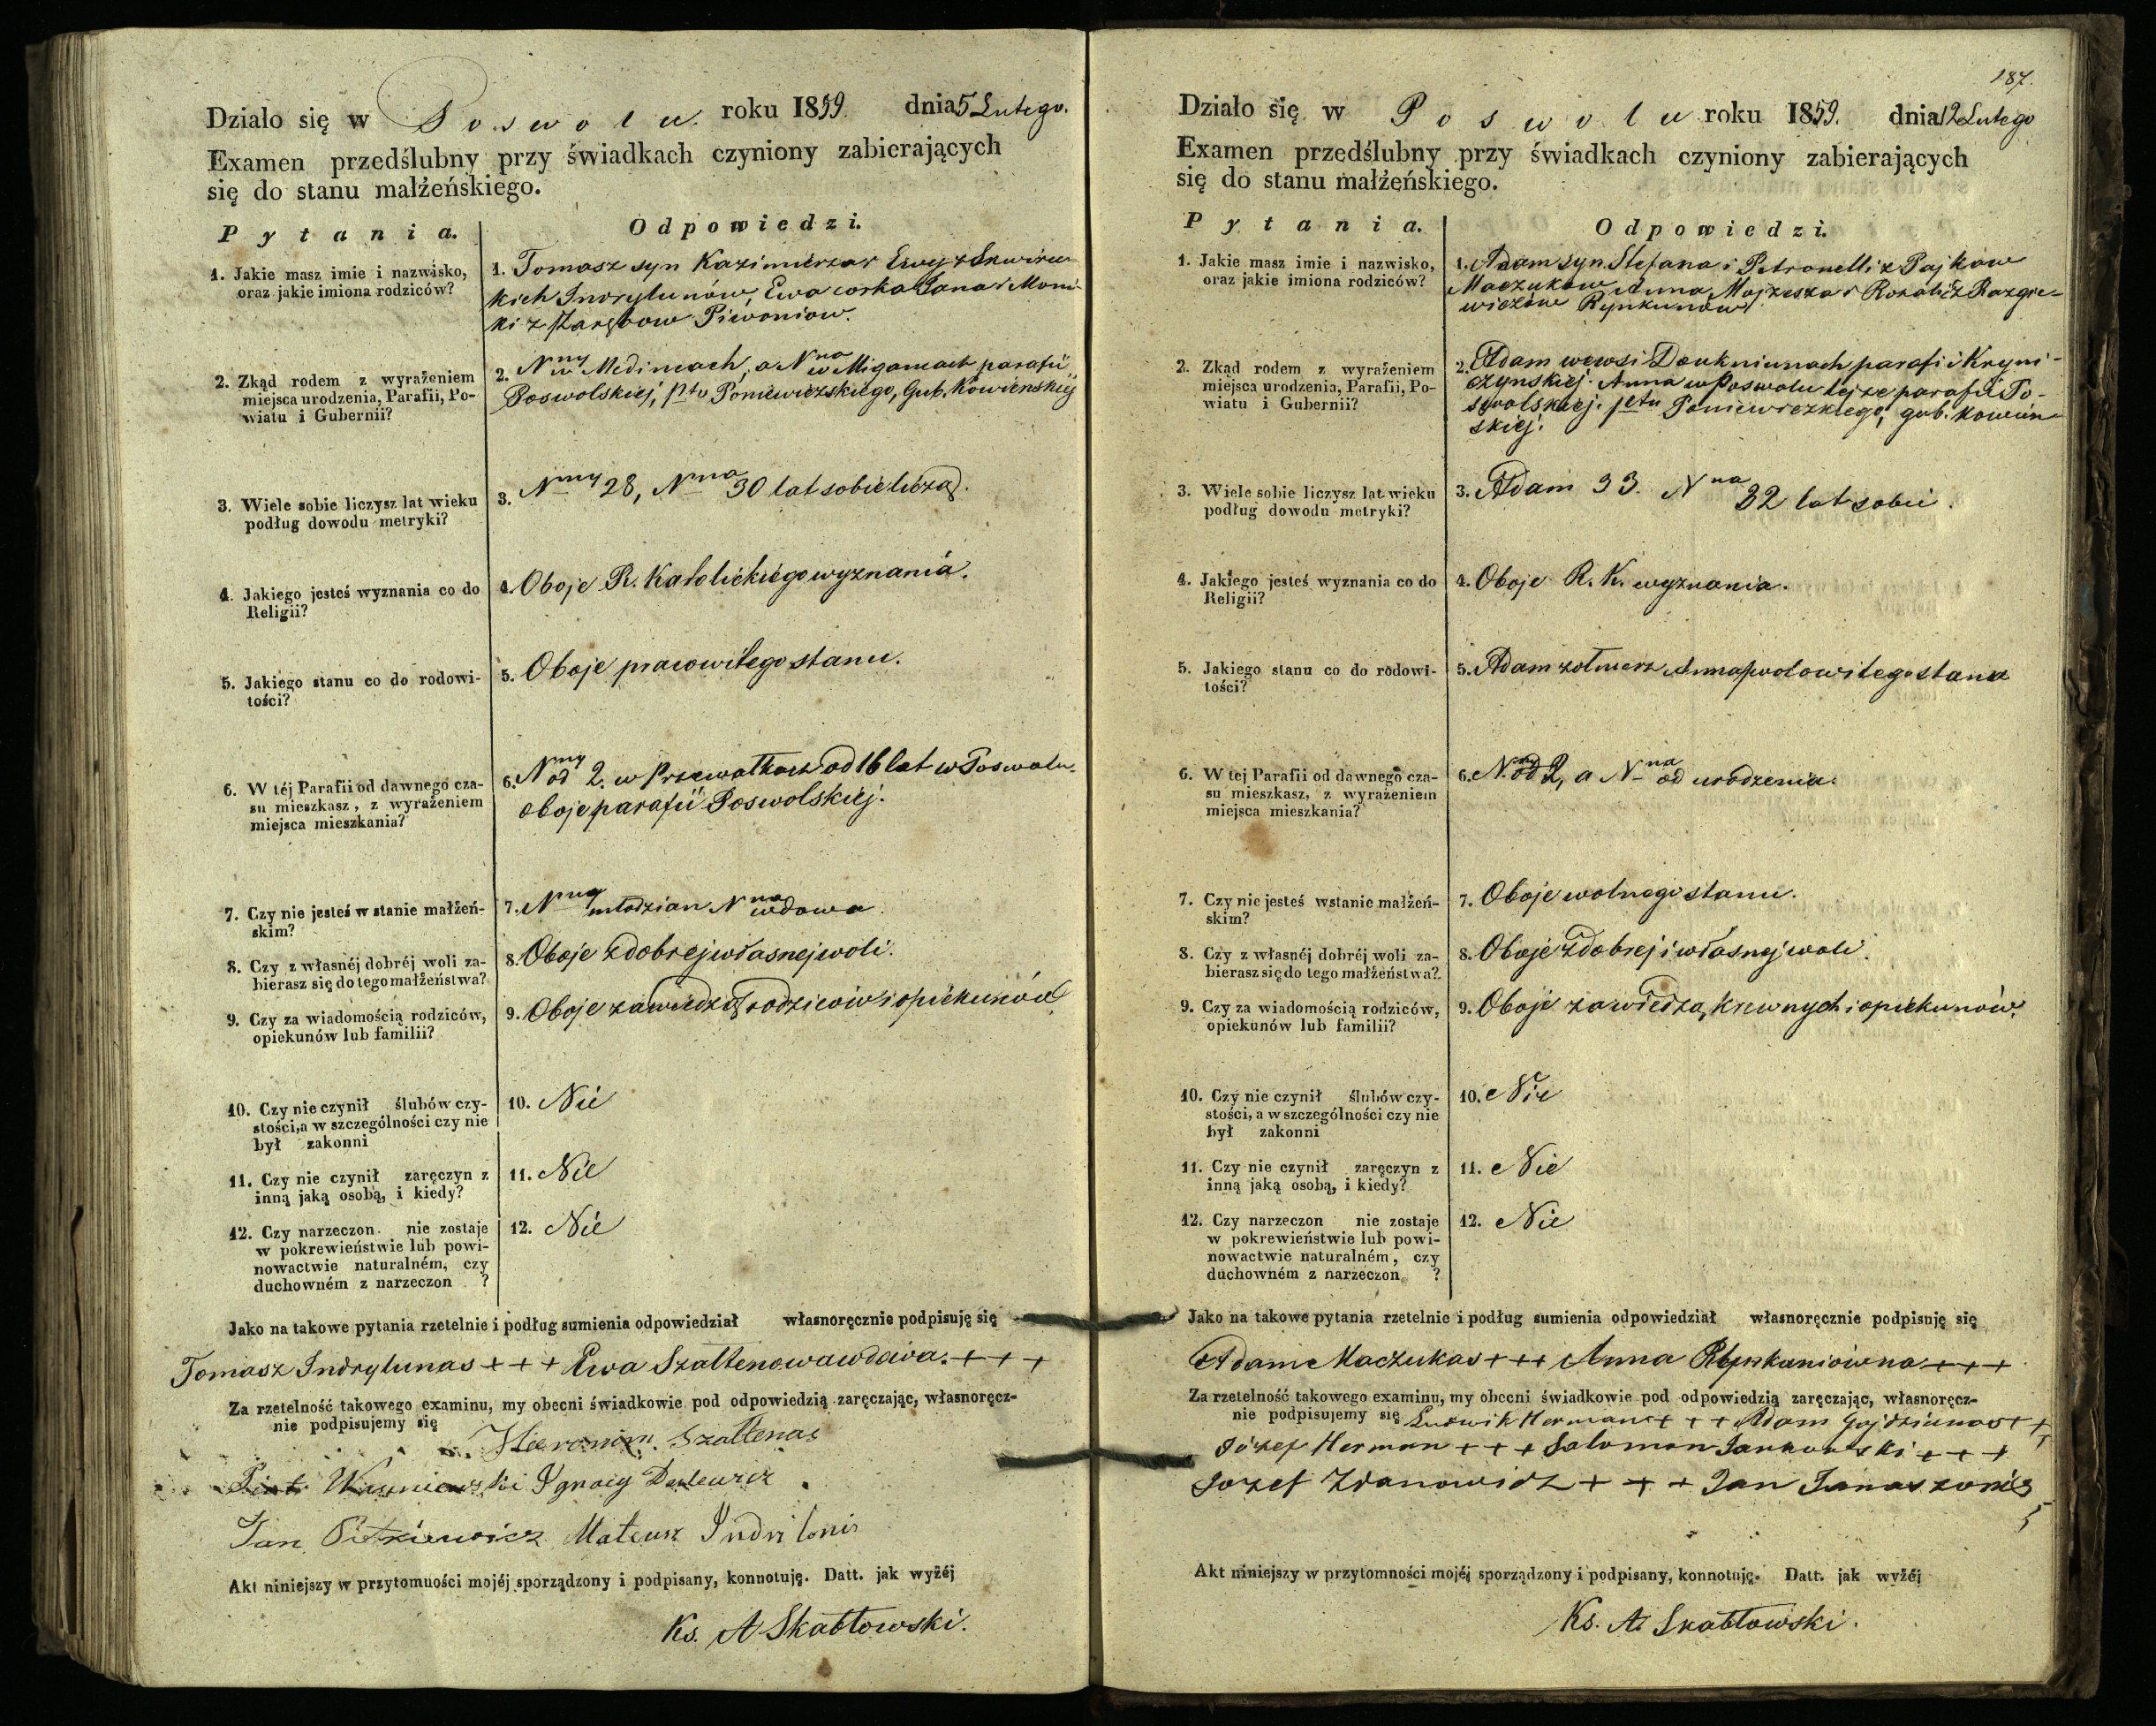 Działo się w Poswolu. roku 1859. dnia 5 Lutego.
Examen przedślubny przy świadkach czyniony zabierających
się do stanu małżeńskiego.
Pytania.
Odpowiedzi.
1. Jakie masz imie i nazwisko,
oraz jakie imiona rodziców?
1. Tomasz syn Kazimierza i Ewy z Skwirec-
kich Indrylunów, Ewa corka Jana i Moni-
ki z Zarębow Piwoniow.
2. Zkąd rodem z wyrażeniem
miejsca urodzenia, Parafii, Po-
wiatu i Gubernii?
2. Nny w Medincach, a Nna w Migancach parafii
Poswolskiej, pttu Poniewieżskiego, Gub. Kowienskiej
3. Wiele sobie liczysz lat wieku
podług dowodu metryki?
3. Nny 28, Nna 30 lat sobie liczą.
4. Jakiego jesteś wyznania co do
Religii?
4. Oboje R. Katolickiego wyznania.
5. Jakiego stanu co do rodowi-
tości?
5. Oboje pracowitego stanu.
6. W téj Parafii od dawnego cza-
su mieszkasz, z wyrażeniem
miejsca mieszkania?
6. Nny od 2. w od 16 lat w Poswolu.
oboje parafii Poswolskiej.
7. Czy nie jesteś w stanie małżeń-
skim?
7. Nny młodzian Nna wdowa.
8. Czy z własnéj dobréj woli za-
bierasz się do tego małżeństwa?
8. Oboje z dobrej własnej woli.
9. Czy za wiadomością rodziców,
opiekunów lub familii?
9. Oboje za wiedzą rodziców i opiekunów
10. Czy nie czynił ślubów czy-
stości, a w szczególności czy nie
był zakonni
10. Nie
11. Czy nie czynił zaręczyn z
inną jaką osobą, i kiedy?
11. Nie
12. Czy narzeczon nie zostaje
w pokrewieństwie lub powi-
nowactwie naturalném, czy
duchowném z narzeczon ?
12. Nie
Jako na takowe pytania rzetelnie i podług sumienia odpowiedział własnoręcznie podpisuję się
Tomasz Indrylunas + + + Ewa Szaltenowa wdowa. + + +
Za rzetelność takowego examinu, my obecni świadkowie pod odpowiedzią zaręczając, własnoręcz-
nie podpisujemy się
Hieronim Szaltenas
Piotr Ignacy
Jan Mateusz
Akt niniejszy w przytomności mojéj sporządzony i podpisany, konnotuję. Datt. jak wyżéj
Ks. A Skabłowski.
187.
Działo się w Poswolu roku 1859. dnia 12 Lutego
Examen przedślubny przy świadkach czyniony zabierających
się do stanu małżeńskiego.
Pytania.
Odpowiedzi.
1. Jakie masz imie i nazwisko,
oraz jakie imiona rodziców?
1. Adam syn Stefana i Petronelli z Pajkow
Maczukow Anna Mojżesza i Rozalii z Razgie-
wiczów Rynkunów
2. Zkąd rodem z wyrażeniem
miejsca urodzenia, Parafii, Po-
wiatu i Gubernii?
2. Adam wewsi Daukniunach parafii Kryni-
czynskiej. Anna w Poswolu tejże parafii Po-
swolskiej. pttu Poniewiezkiego, gub. Kowień-
skiej.
3. Wiele sobie liczysz lat wieku
podług dowodu metryki?
3. Adam 33. Nna 32 lat sobie.
4. Jakiego jesteś wyznania co do
Religii?
4. Oboje R. K. wyznania.
5. Jakiego stanu co do rodowi-
tości?
5. Adam zołnierz Anna stanu
6. W tej Parafii od dawnego cza-
su mieszkasz, z wyrażeniem
miejsca mieszkania?
6. Nny od 2, a Nna od urodzenia.
7. Czy nie jesteś wstanie małżeń-
skim?
7. Oboje wolnego stanu.
8. Czy z własnéj dobréj woli za-
bierasz się do tego małżeństwa?
8. Oboje z dobrej i własnej woli.
9. Czy za wiadomością rodziców,
opiekunów lub familii?
9. Oboje za wiedzą, krewnych i opiekunów.
10. Czy nie czynił ślubów czy-
stości, a w szczególności czy nie
był zakonni
10. Nie
11. Czy nie czynił zaręczyn z
inną jaką osobą, i kiedy?
11. Nie
12. Czy narzeczon nie zostaje
w pokrewieństwie lub powi-
nowactwie naturalném, czy
duchowném z narzeczon ?
12. Nie
Jako na takowe pytania rzetelnie i podług sumienia odpowiedział własnoręcznie podpisuję się
Adam Maczukas + + + Anna Rynkuniówna + + +
Za rzetelność takowego examinu, my obecni świadkowie pod odpowiedzią zaręczając, własnoręcz-
nie podpisujemy się Ludwik Herman + + + Adam Gajdziunas + +
Józef Herman + + + Salomon Jankowski + + +
Jozef Zdanowicz + + + Jan Janaszonis
Akt niniejszy w przytomności mojéj sporządzony i podpisany, konnotuję. Datt. jak wyżéj
Ks. A. Skabłowski.